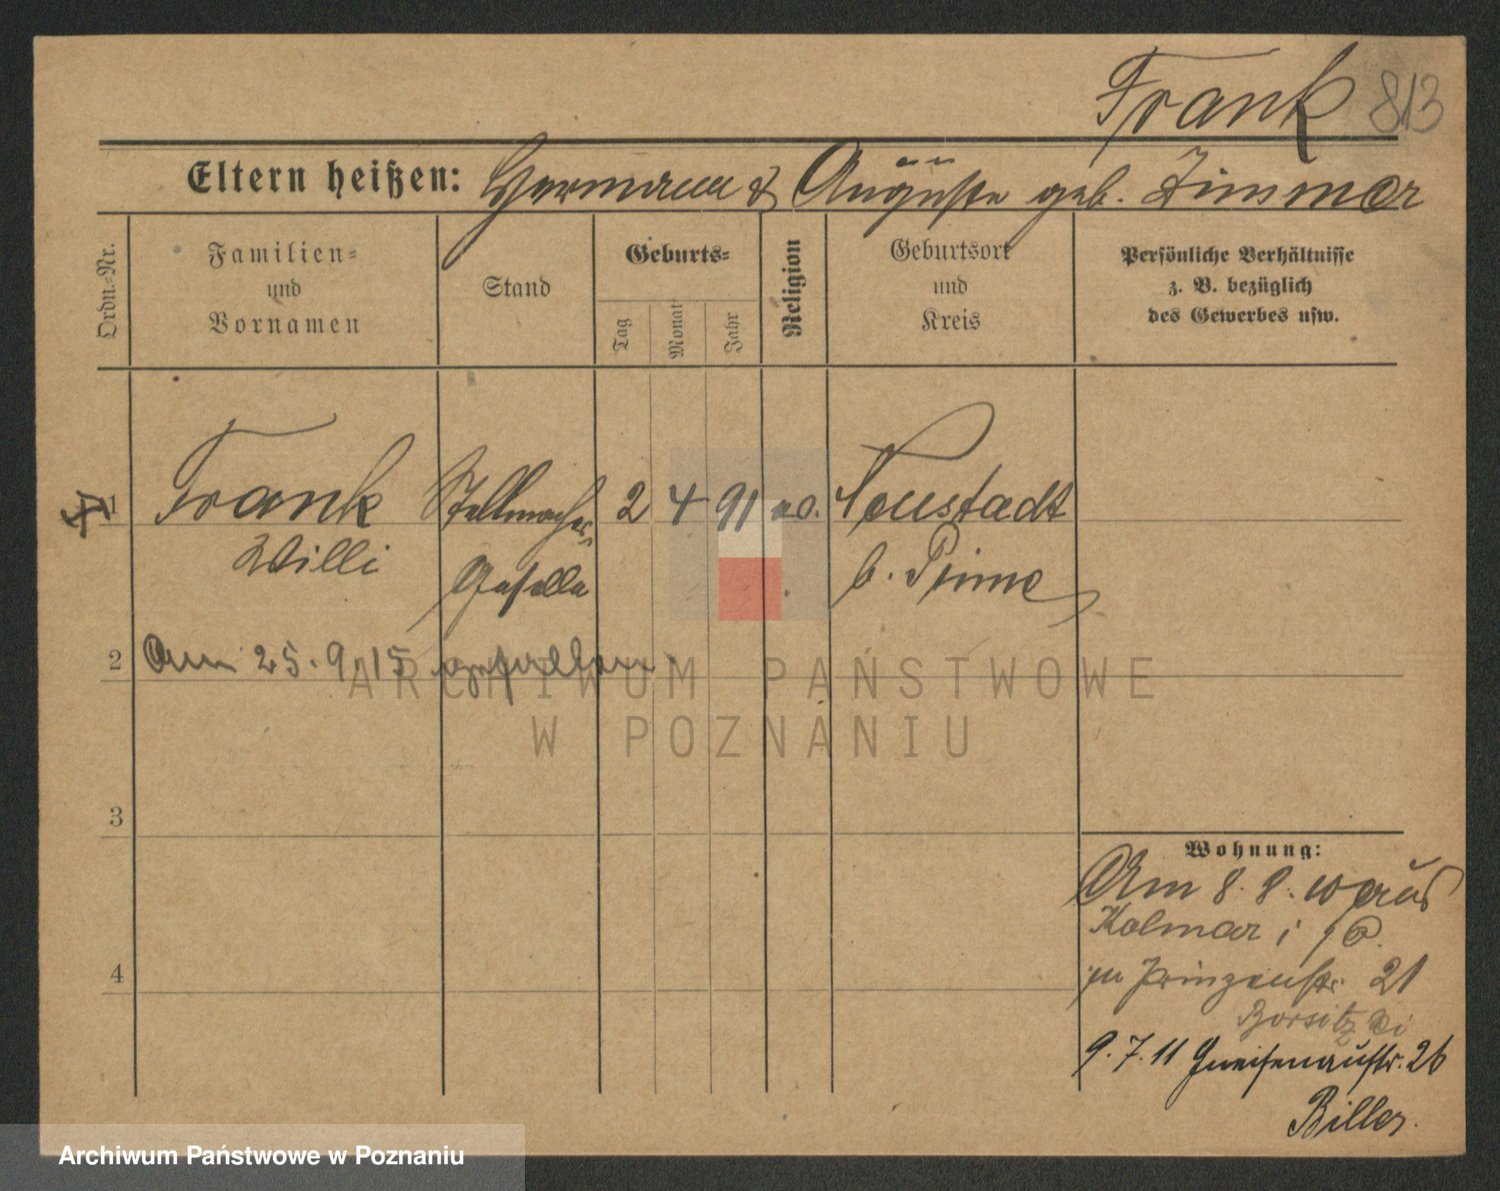 Frank 813
Eltern heißen: Hermann & Auguste geb. Zimmer
Ordn.-Nr.
Familien- und Vornamen
Stand
Geburts-
Tag
Monat
Jahr
Religion
Geburtsort und Kreis
Persönliche Verhältnisse
z. B. bezüglich
des Gewerbes usw.
1 Frank Stellmacher- 2 4 91 Neustadt
Willi Geselle b. Pinne
2 Am 25.9.15 gefallen
3
4
ARCHIWUM PAŃSTWOWE
W POZNANIU
Wohnung:
Am 8.8. aus
Kolmar i P.
zu Prinzenstr. 21
9.7.11 Gneisenaustr. 26
Biller.
Archiwum Państwowe w Poznaniu